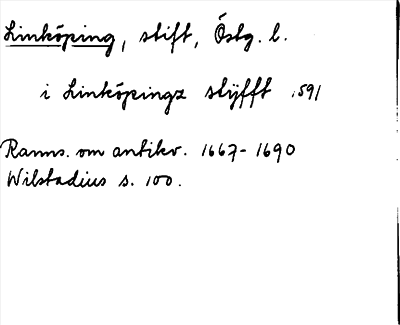 Linköping, stift, Östg. l.
i Linköpingz stÿfft 1591
Ranns. om antikv. 1667-1690
Wilstadius s. 100.